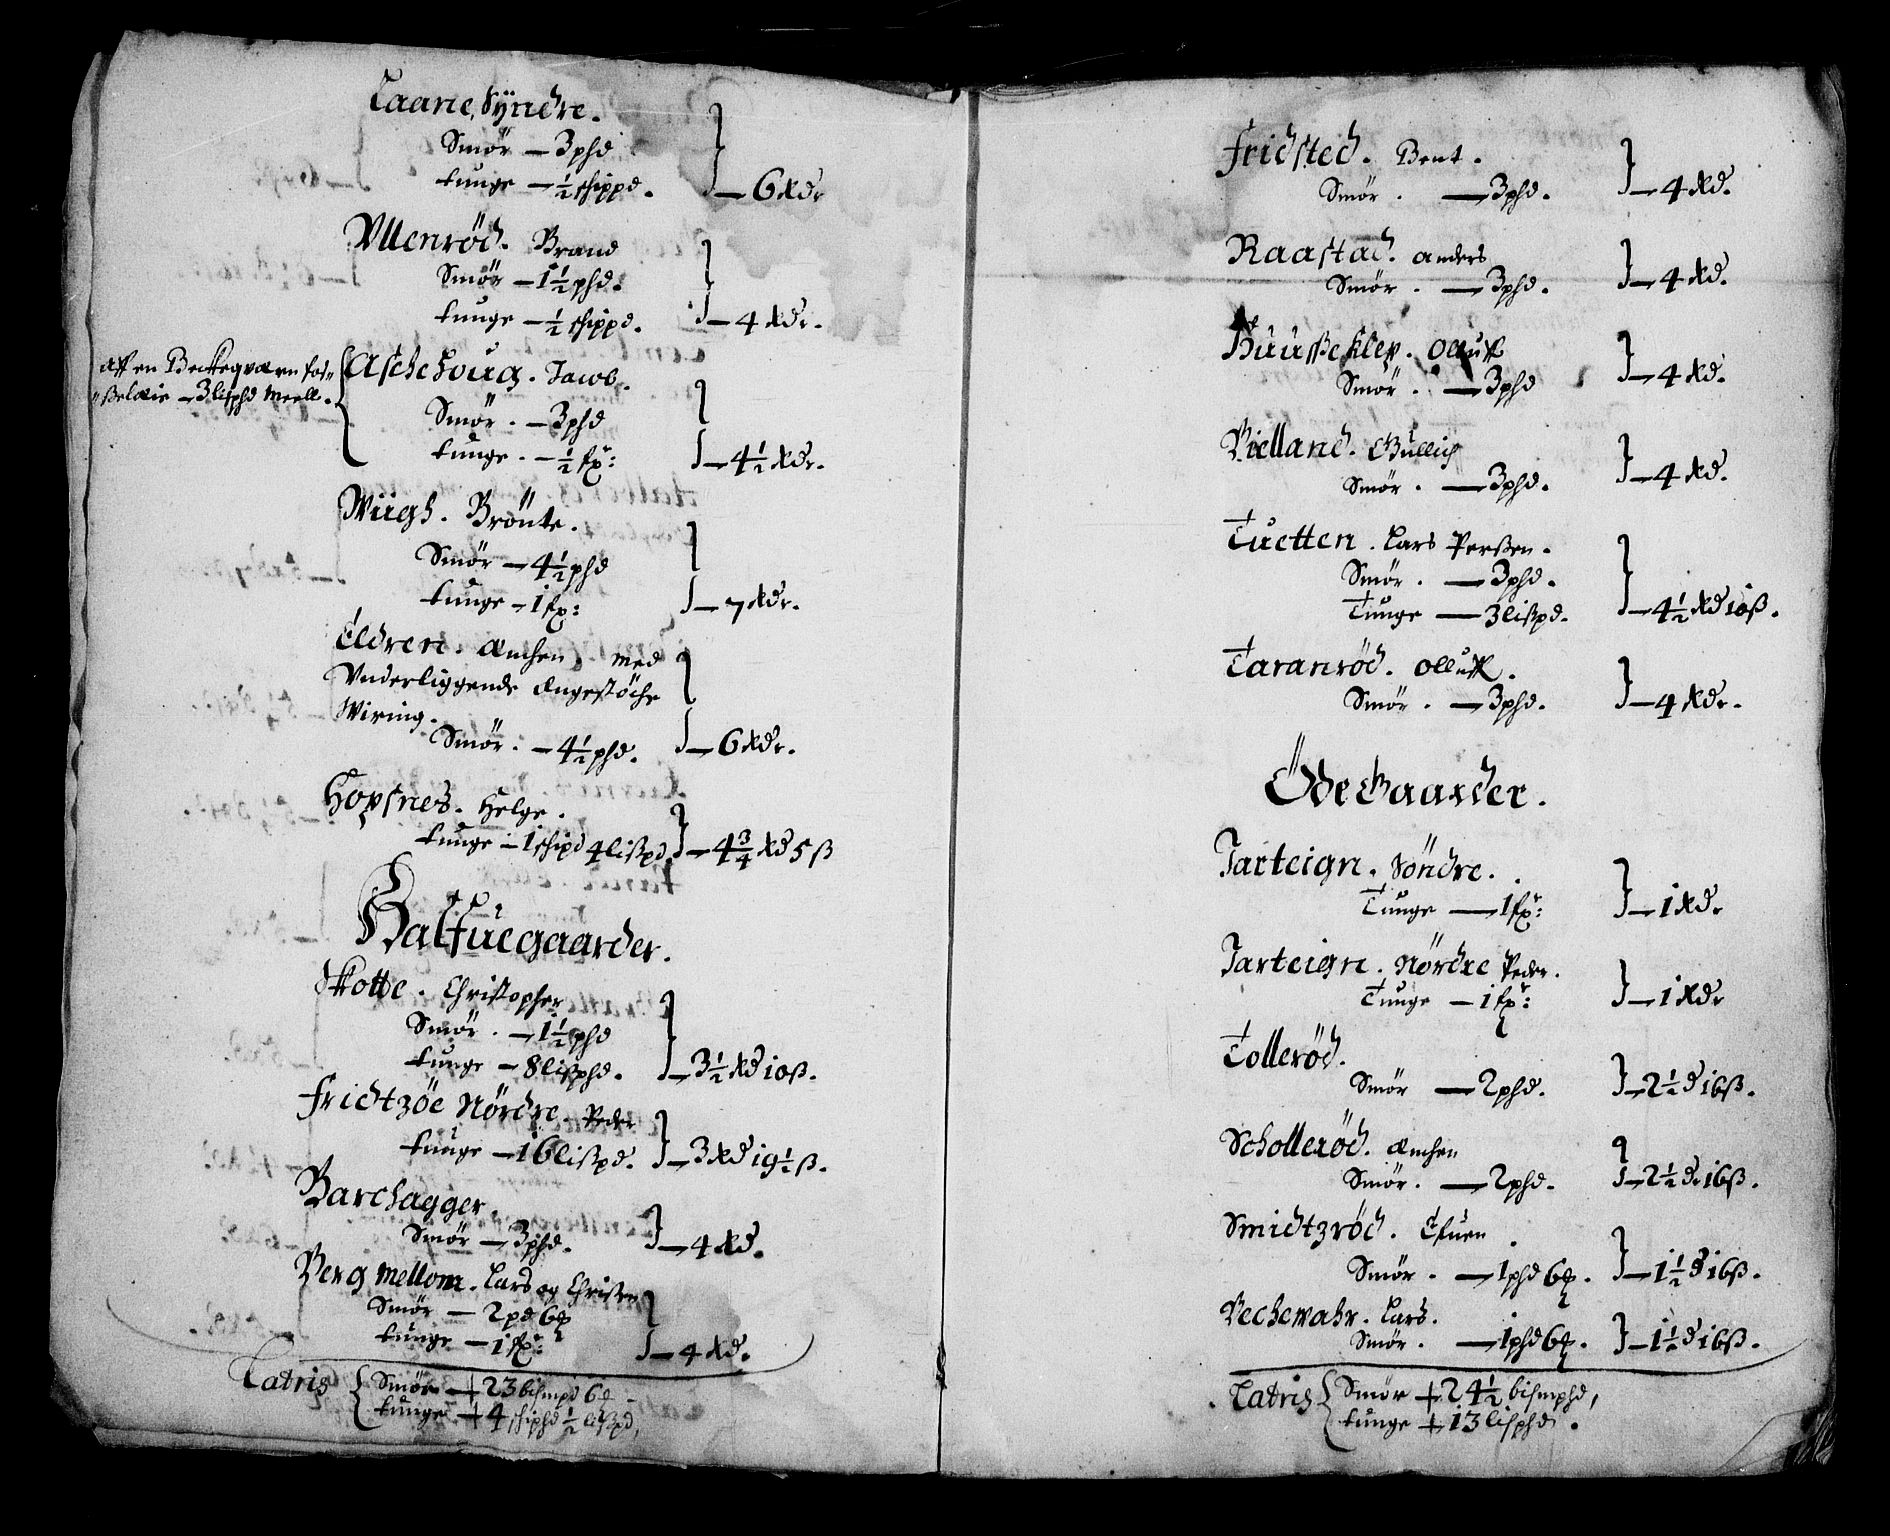 Laane, Syndre.
Smør — 3 phd
tunge — ½ schippd. — 6 Rdr
Ullenrød. Brand
Smør — 1½ phd.
tunge — ½ schippd. — 4 Rdr.
Aff en Beckeqvarn
— 3 lisphd Meell.
Aschehoug. Jacob.
Smør. — 3 phd
tunge. — ½ fxr: — 4½ Rdr.
Wiigh. Brönte.
Smør — 4½ phd
tunge — 1 fx: — 7 Rdr.
Eldren. Amchen, med
Underliggende Engestöche
Wiring.
Smør. — 4½ phd. — 6 Rdr.
Hopsnes. Helge.
tunge — 1 schipd 4 lißpd. — 4¾ Rd 5 ß
Halfuegaarder.
Skotte. Christopher
Smør. — 1½ phd
tunge — 8 lißphd. — 3½ Rd 10 ß.
Frichtzöe Nördre. Peder
tunge — 16 lißpd. — 3 Rd 19½ ß.
Barchagger.
Smør — 3 phd. — 4 Rd.
Berg mellom. Lars og Christen
Smør — 2 pd 6
tunge — 1 fxr: — 4 Rd.
Latris
Smør — 23 bismpd 6
tunge — 4 schiphd ½ lißpd,
Fridsted. Bent.
Smør. — 3 phd. — 4 Rd.
Raastad. Anders
Smør. — 3 phd. — 4 Rd.
Huusseklef. Olluff
Smør. — 3 phd — 4 Rd.
Vielland. Gullich
Smør. — 3 phd. — 4 Rd.
Tuetten. Lars Perßen.
Smør. — 3 phd.
Tunge — 3 lißpd. — 4½ Rd 10 ß.
Taranrød. Olluff.
Smør. — 3 phd. — 4 Rdr.
Öde Gaarder.
Jarteign. Söndre.
Tunge — 1 fxr: — 1 Rdr
Jarteign. Nördre Peder.
Tunge — 1 fxr: — 1 Rdr
Tollerød.
Smør — 2 phd. — 2½ d 16 ß.
Schollerød. Amchen
Smør. — 2 phd. — 2½ dr 16 ß.
Smidtzrød. Efuen.
Smør. — 1 phd 6 — 1½ d 16 ß.
Bechevahr. Lars.
Smør. — 1 phd 6 — 1½ d 16 ß.
Latris
Smør — 24½ bismphd,
tunge — 13 lisphd.